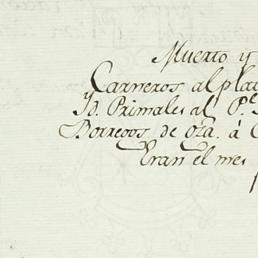 Muerto y
Carneros al pla
y Id. Primales al P.e
Borregos de oza. á
Eran el mes